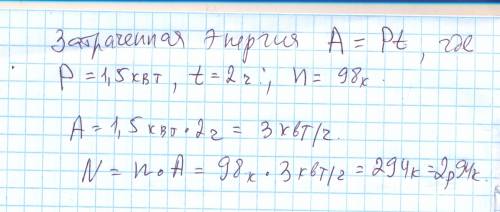 Затраченная энергия A = Pt, где
P = 1,5 квт, t = 2 ч; n = 98к.
A = 1,5 квт · 2 ч = 3 квт/ч.
N = n · A = 98к · 3 квт/ч = 294к = 2р94к.